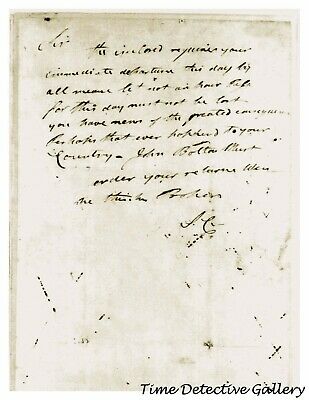 Sir the inclosed requires your
immediate departure this day by
all means let not an hour pass
for this day must not be lost
you have news of the greatest consequence
perhaps that ever happend to your
Country - John Bolton must
order your returne when
he thinks Proper
S.C.
Time Detective Gallery